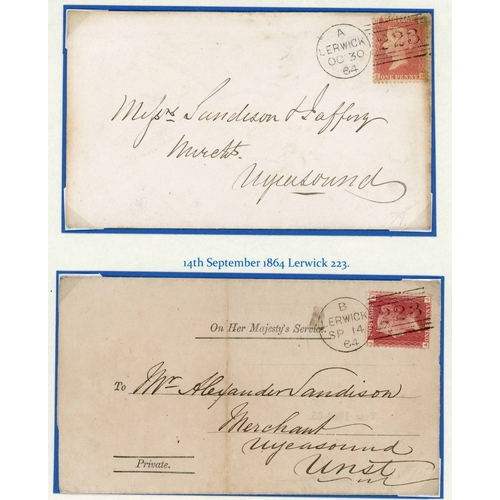 A
LERWICK
OC 30
64
223
ONE PENNY
Messrs Sandison & Jaffery
Merchts.
Uyeasound
14th September 1864 Lerwick 223.
B
LERWICK
SP 14
64
223
On Her Majesty's Service.
To Mr. Alexander Sandison
Merchant
Uyeasound
Unst
Private.